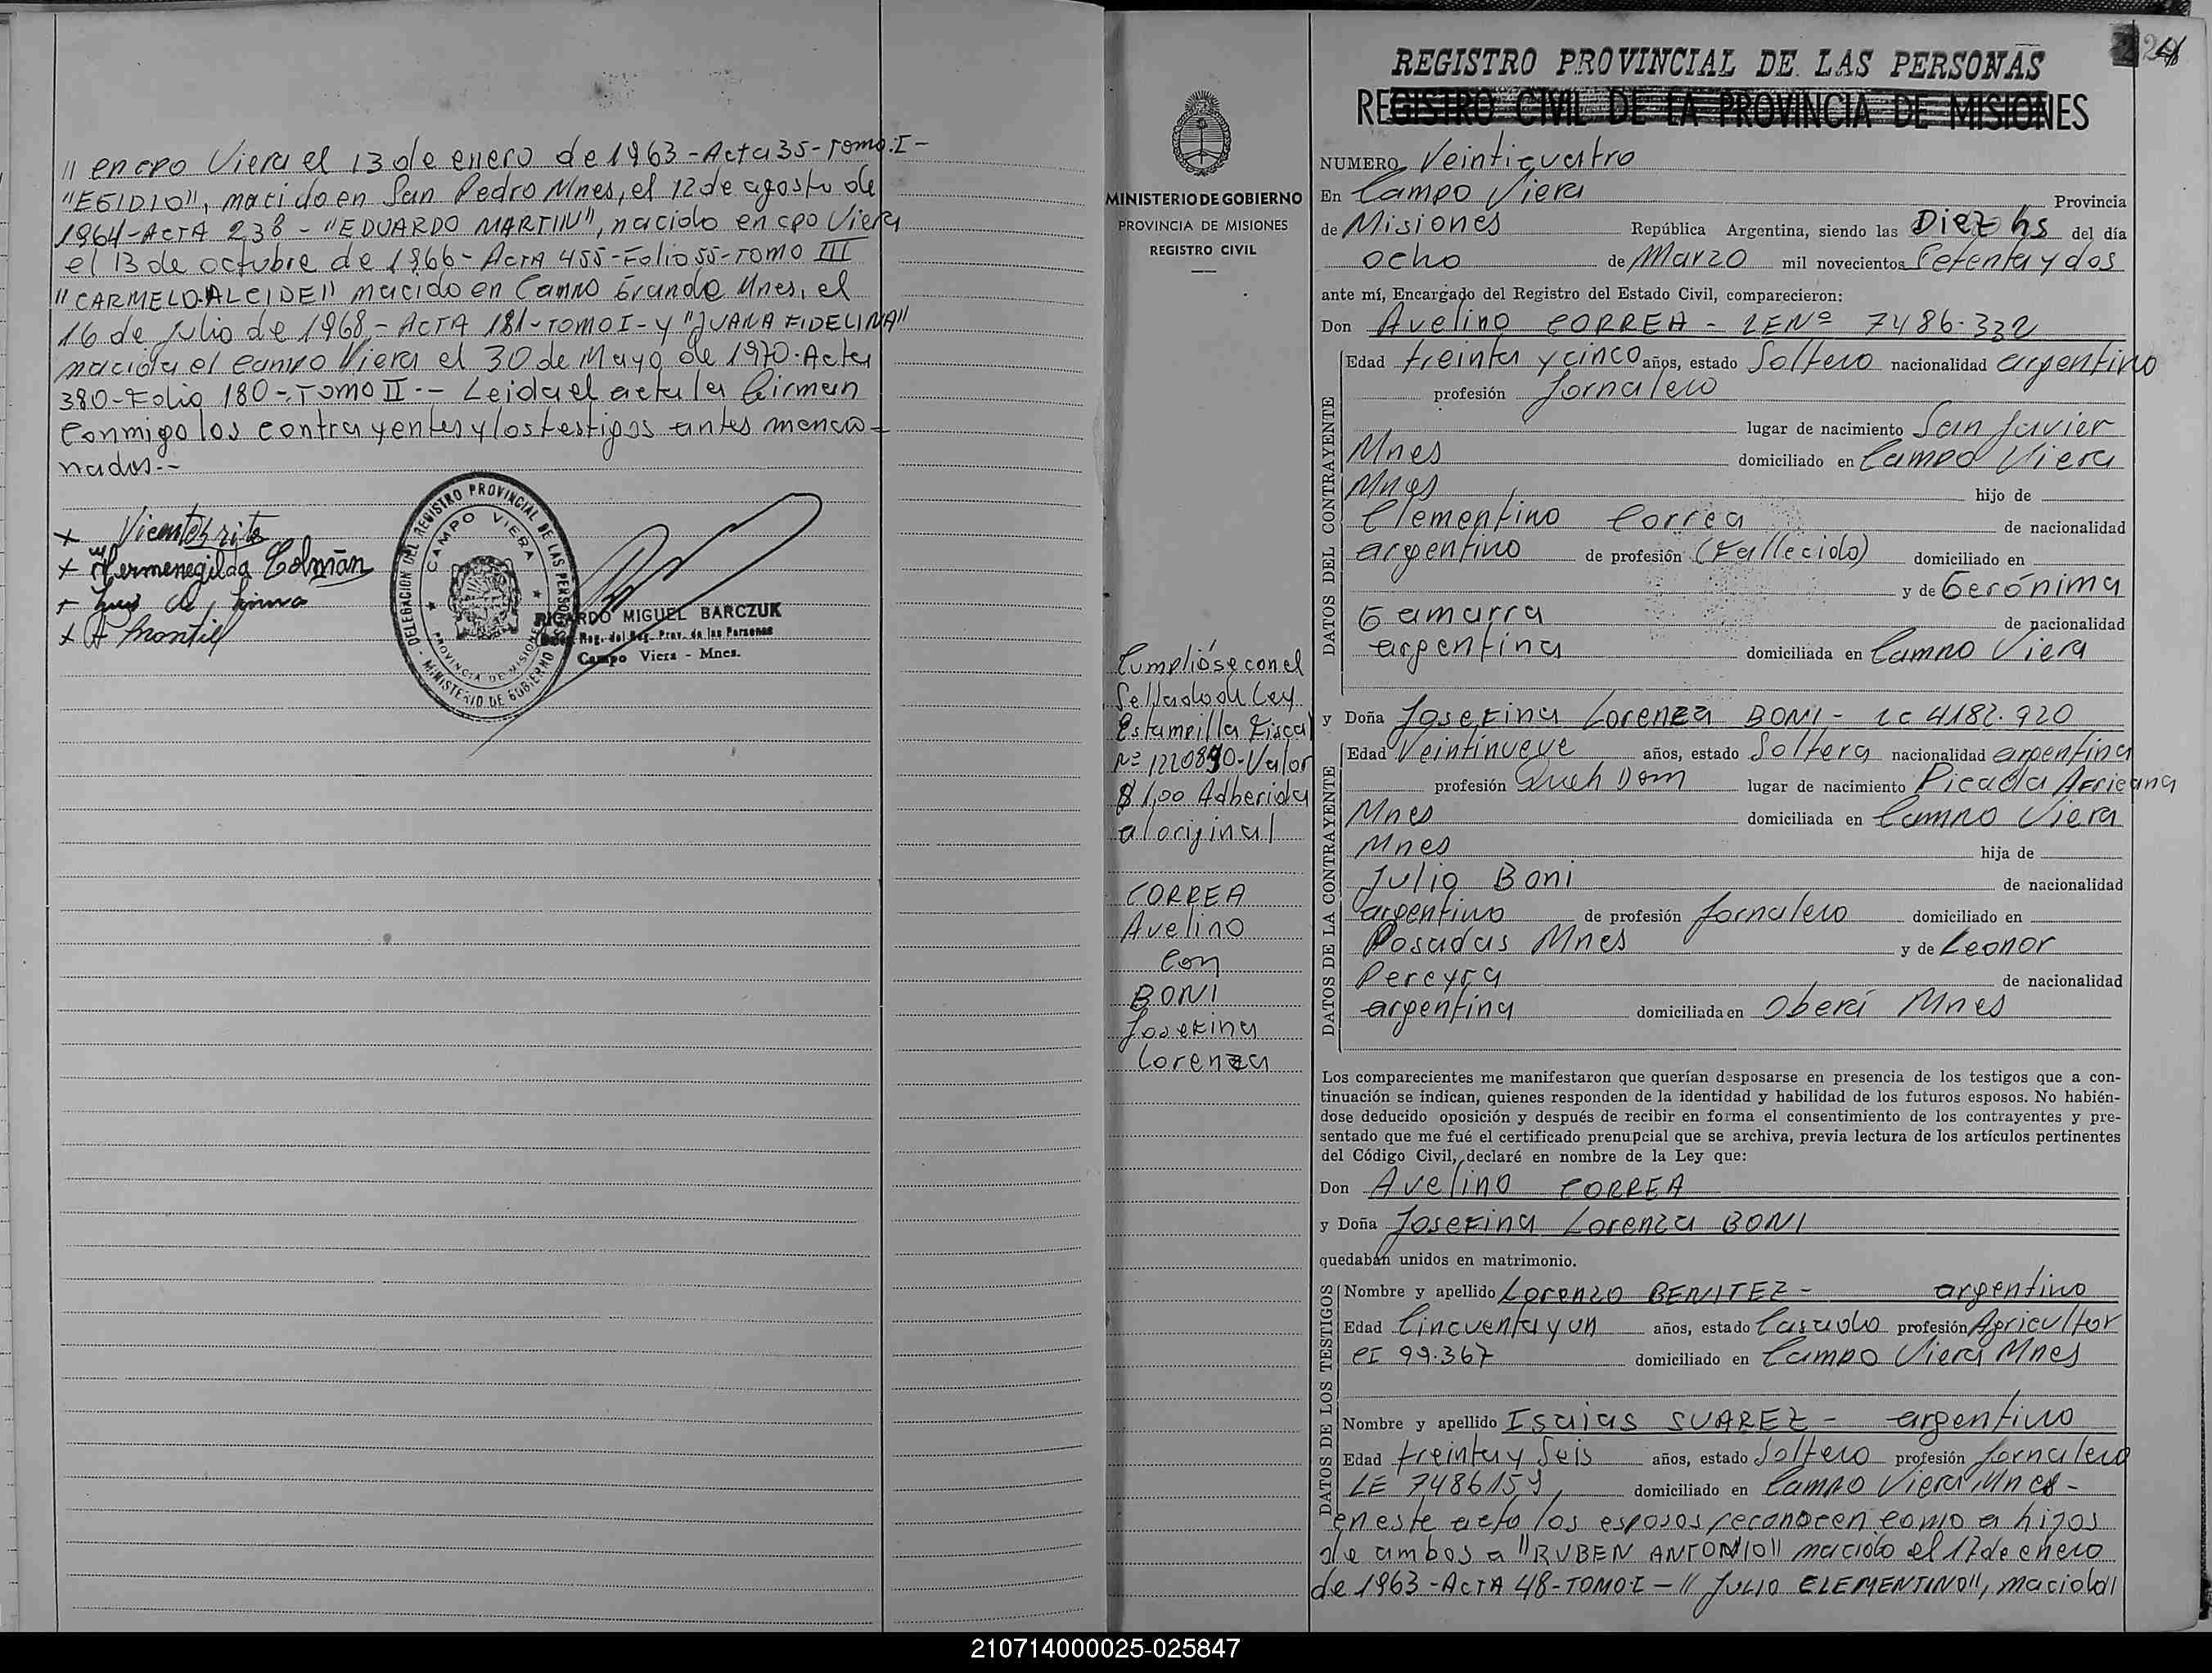 " en cpo Viera el 13 de enero de 1963 - Acta 35 - Tomo. I -
"EGIDIO", nacido en San Pedro Mnes, el 12 de agosto de
1964 - ACTA 238 - "EDUARDO MARTIN", nacido en cpo Viera
el 13 de octubre de 1966 - ACTA 455 - Folio 55 - TOMO III
"CARMELO ALCIDE" nacido en Campo Grande Mnes, el
16 de Julio de 1968 - ACTA 181 - TOMO I - y "JUANA FIDELINA"
nacida el Campo Viera el 30 de Mayo de 1970 - Acta
380 - Folio 180 - Tomo II -- Leida el acta la firman
Conmigo los contrayentes y los testigos antes mencio-
nados --
x
x Hermenegilda Colmán
x
x A Montiel
DELEGACION DEL REGISTRO PROVINCIAL DE LAS PERSONAS
CAMPO VIERA
PROVINCIA DE MISIONES
MINISTERIO DE GOBIERNO
RICARDO MIGUEL BARCZUK
Reg. del Reg. Prov. de las Personas
Campo Viera - Mnes.
MINISTERIO DE GOBIERNO
PROVINCIA DE MISIONES
REGISTRO CIVIL
Cumplióse con el
Sellado de Ley
Estampilla Fiscal
Nº 1220890 - Valor
$ 1,00 Adherida
al original
CORREA
Avelino
Con
BONI
Josefina
Lorenza
REGISTRO PROVINCIAL DE LAS PERSONAS
REGISTRO CIVIL DE LA PROVINCIA DE MISIONES
NUMERO Veinticuatro
En Campo Viera Provincia
de Misiones República Argentina, siendo las Diez hs del día
ocho de Marzo mil novecientos Setenta y dos
ante mí, Encargado del Registro del Estado Civil, comparecieron:
Don Avelino CORREA - LE Nº 7486.332
DATOS DEL CONTRAYENTE
Edad treinta y cinco años, estado Soltero nacionalidad argentino
profesión Jornalero
lugar de nacimiento San Javier
Mnes domiciliado en Campo Viera
Mnes hijo de
Clementino Correa de nacionalidad
argentino de profesión (Fallecido) domiciliado en
y de Gerónima
Gamarra de nacionalidad
argentina domiciliada en Campo Viera
y Doña Josefina Lorenza BONI - LC 4182.920
DATOS DE LA CONTRAYENTE
Edad Veintinueve años, estado Soltera nacionalidad argentina
profesión Queh Dom lugar de nacimiento Picada Africana
Mnes domiciliada en Campo Viera
Mnes hija de
Julio Boni de nacionalidad
argentino de profesión Jornalero domiciliado en
Posadas Mnes y de Leonor
Pereyra de nacionalidad
argentina domiciliada en Oberá Mnes
Los comparecientes me manifestaron que querían desposarse en presencia de los testigos que a con-
tinuación se indican, quienes responden de la identidad y habilidad de los futuros esposos. No habién-
dose deducido oposición y después de recibir en forma el consentimiento de los contrayentes y pre-
sentado que me fué el certificado prenupcial que se archiva, previa lectura de los artículos pertinentes
del Código Civil, declaré en nombre de la Ley que:
Don Avelino CORREA
y Doña Josefina Lorenza BONI
quedaban unidos en matrimonio.
DATOS DE LOS TESTIGOS
Nombre y apellido Lorenzo BENITEZ - argentino
Edad Cincuenta y un años, estado Casado profesión Agricultor
CI 99.367 domiciliado en Campo Viera Mnes
Nombre y apellido Isaias SUAREZ - argentino
Edad treinta y Seis años, estado Soltero profesión Jornalero
LE 7486159 domiciliado en Campo Viera Mnes -
en este acto los esposos reconocen como a hijos
de ambos a "RUBEN ANTONIO" nacido el 17 de enero
de 1963 - ACTA 48 - TOMO I - "JULIO CLEMENTINO", nacido"
210714000025-025847